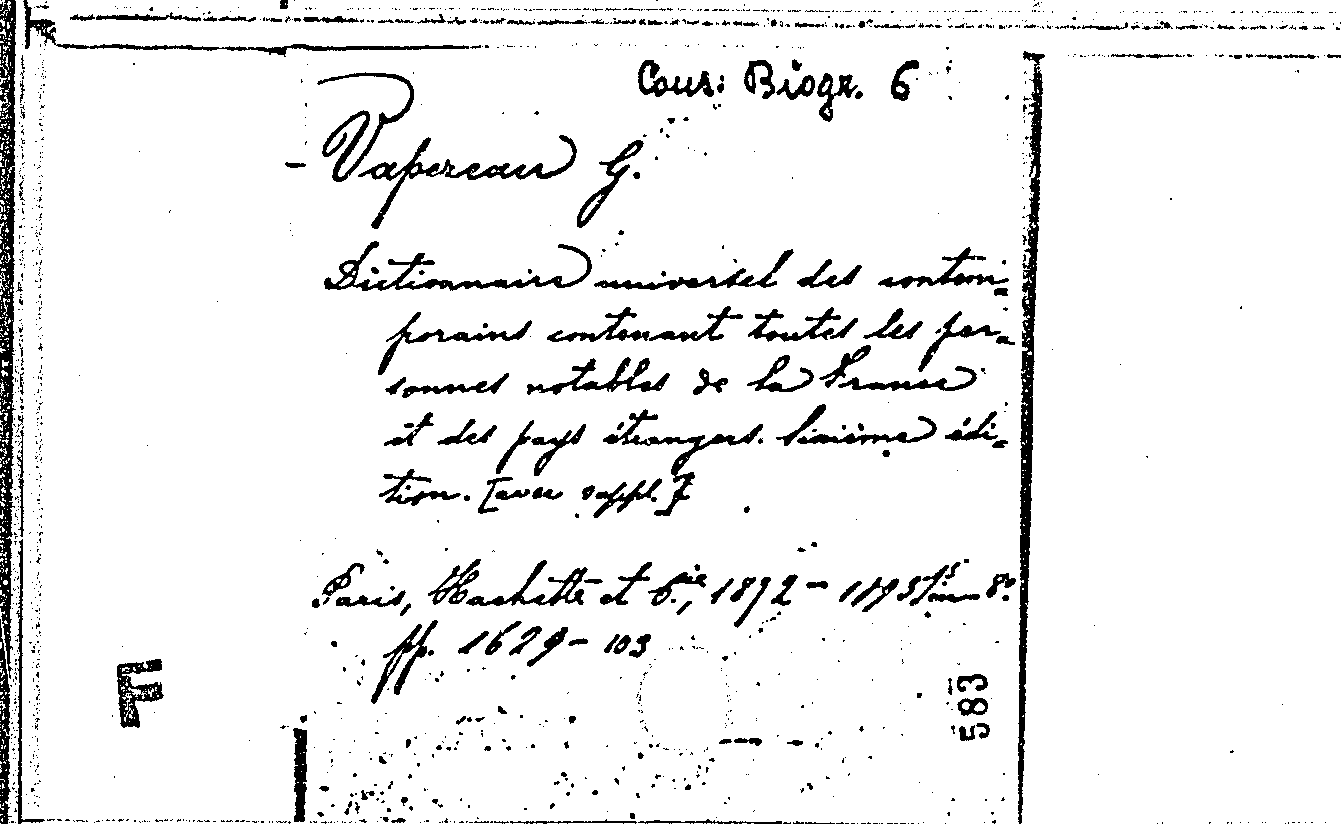 Cons: Biogr. 6
- Vapereau G.
Dictionnaire universel des contem-
porains contenant toutes les per-
sonnes notables de la France
et des pays étrangers. Sixième édi-
tion. [avec suppl.]
Paris, Hachette et C.ie, 189 - 1895 in 8°.
pp. 1629 - 103
F
583